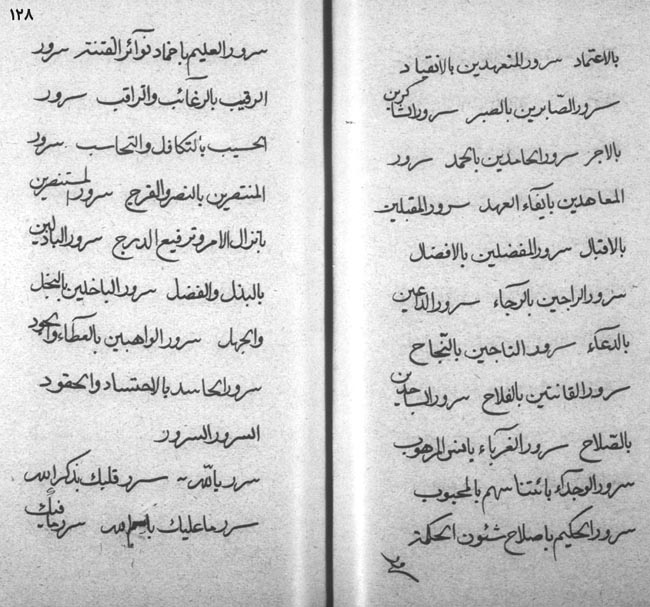 ١٢٨
بالاعتماد سرور المتعهدين بالانقياد
سرور الصّابرين بالصبر سرور الشاكرين
بالاجر سرور الحامدين بالحمد سرور
المعاهدين بايفاء العهد سرور المقبلين
بالاقبال سرور المفضلين بالافضال
سرور الراجين بالرجاء سرور الداعين
بالدعاء سرور الناجين بالنّجاح
سرور القانتين بالفلاح سرور الساجدين
بالصّلاح سرور الغرباء المرهوب
سرور الوجداء بائتناسهم بالمحبوب
سرور الحكيم باصلاح شئون الحكمة
سرور العليم باخماد نوآئر الفتنة سرور
الرقيب بالرغائب والتراقب سرور
الحسيب بالتكافل والتحاسب سرور
المنتصرين بالنصر والفرج سرور المستنصرين
بانزال الامر وترفيع الدرج سرور الباذلين
بالبذل والفضل سرور الباخلين بالبخل
والجهل سرور الواهبين بالعطاء والجود
سرور الحاسد بالاحتساد والحقود
السرور السرور
سرر بالله سرر قلبك بذكر الله
سرر ما عليك باسم الله سرر ما فيك